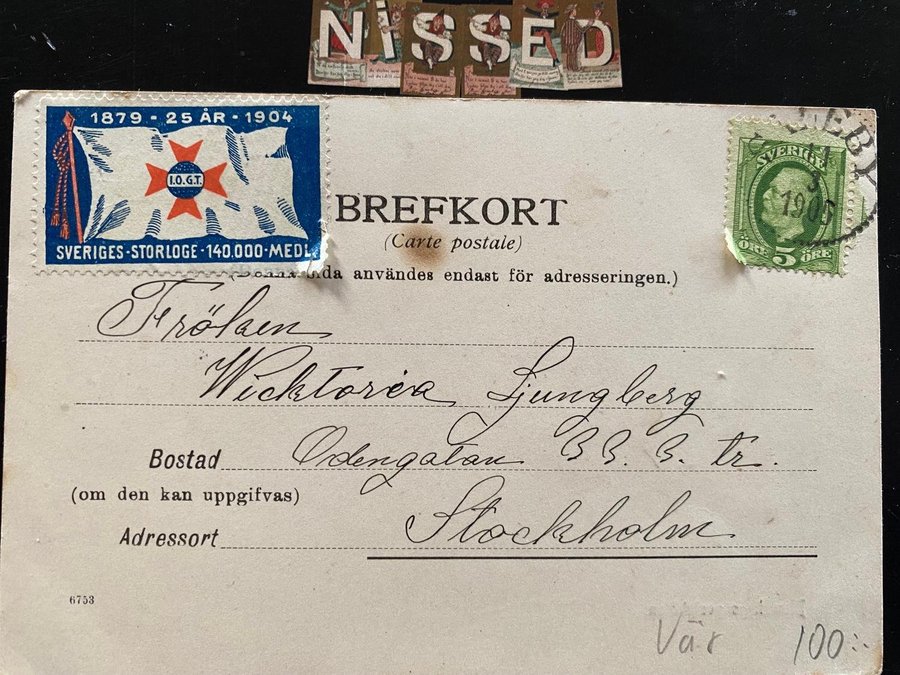 NiSSED
1879 - 25 ÅR - 1904
I.O.G.T.
SVERIGES-STORLOGE-140.000-MEDL
BREFKORT
(Carte postale)
(Denna sida användes endast för adresseringen.)
SVERIGE
5
ÖRE 5 ÖRE
3
1905
Fröken
Wicktoria Ljungberg
Bostad Odengatan 33. 3. tr.
(om den kan uppgifvas)
Adressort Stockholm
6753
Vär 100:-